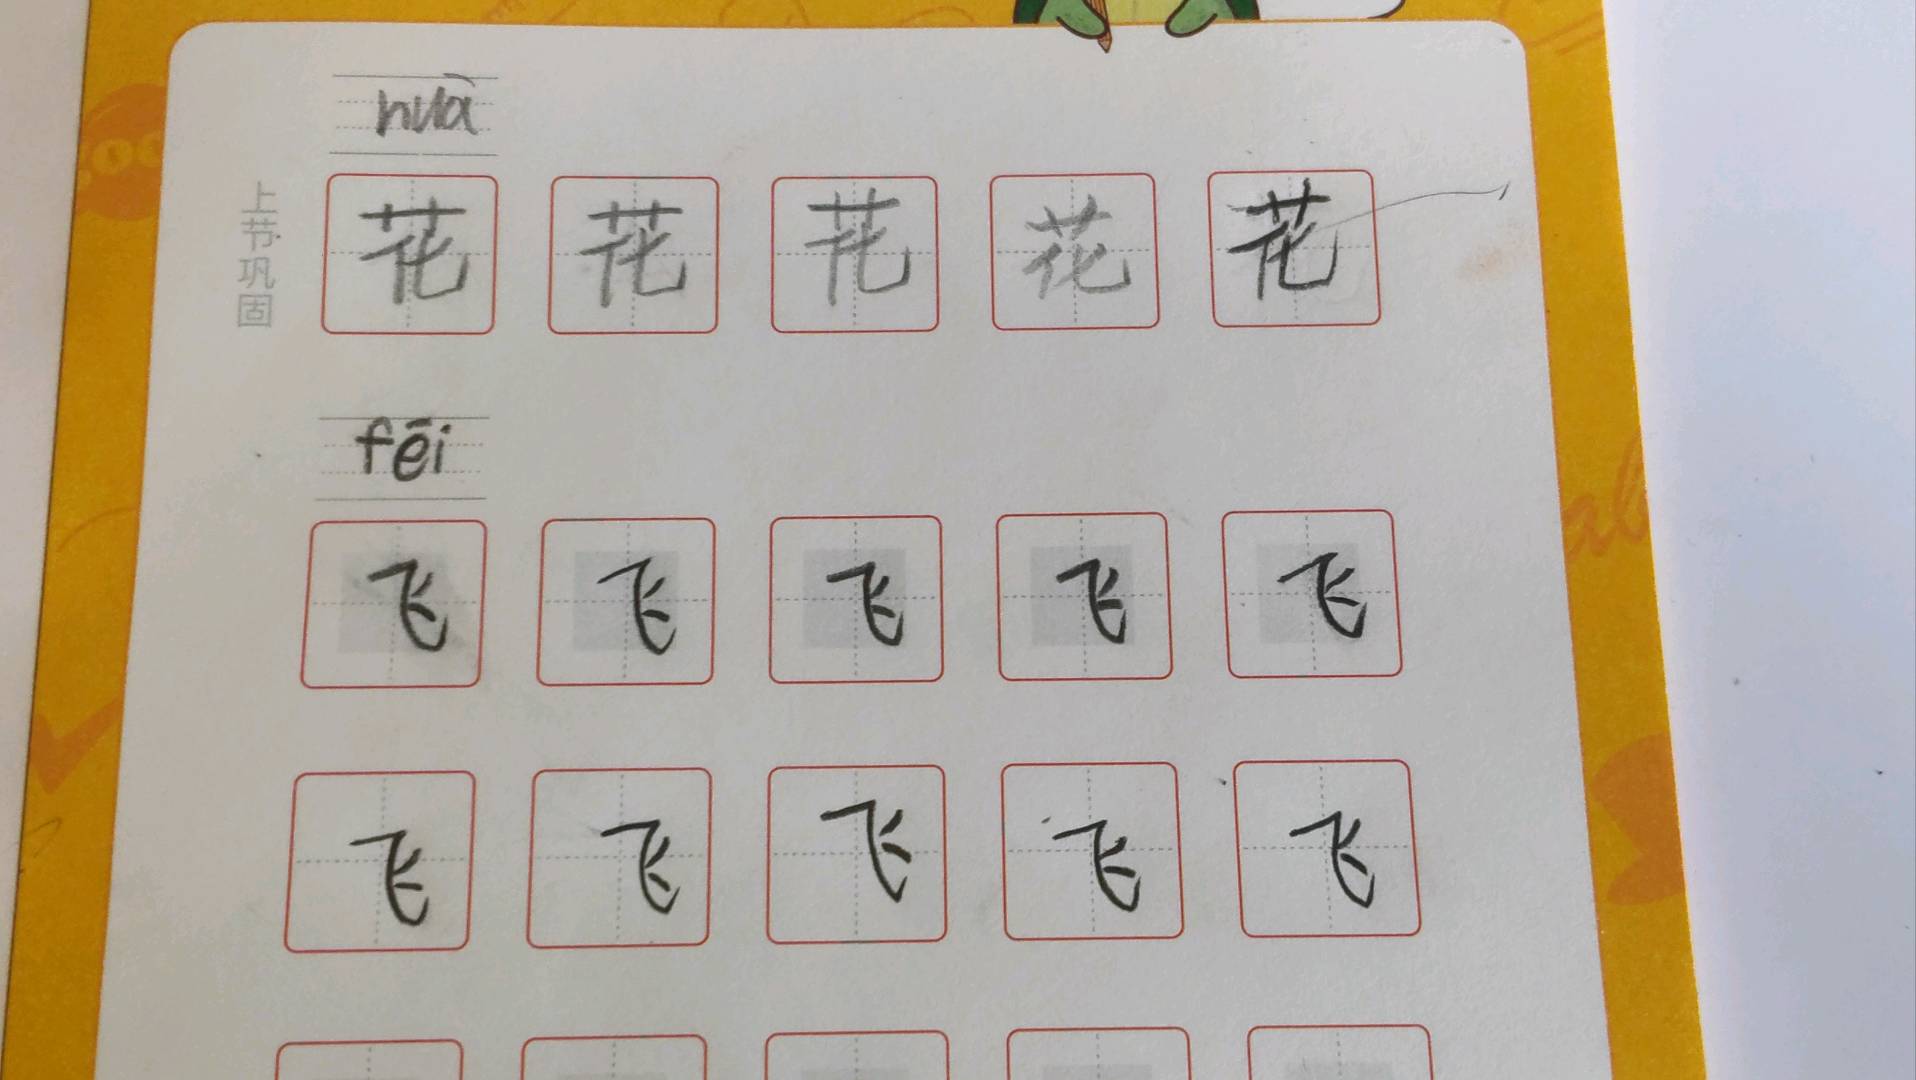 huā
上节巩固
花 花 花 花 花
fēi
飞 飞 飞 飞 飞
飞 飞 飞 飞 飞